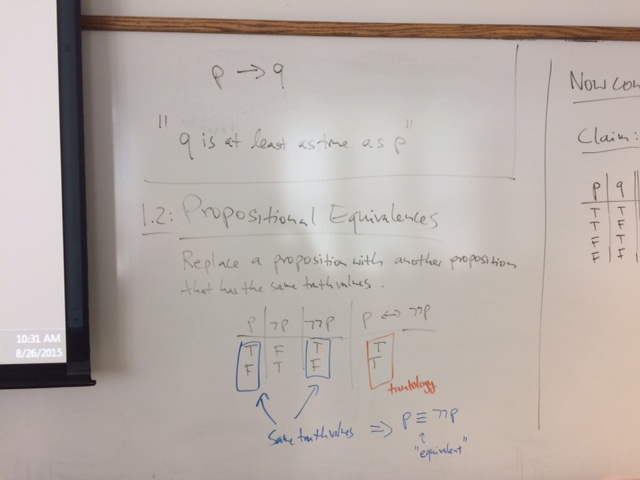 p → q
"q is at least as true as p"
1.2: Propositional Equivalences
Replace a proposition with another proposition
that has the same truth values.
p ¬p ¬¬p p ↔ ¬¬p
T F T T
F T F T
tautology
Same truth values ⇒ p ≡ ¬¬p
↑
"equivalent"
10:31 AM
8/26/2015
Now
Claim:
p q
T T
T F
F T
F F